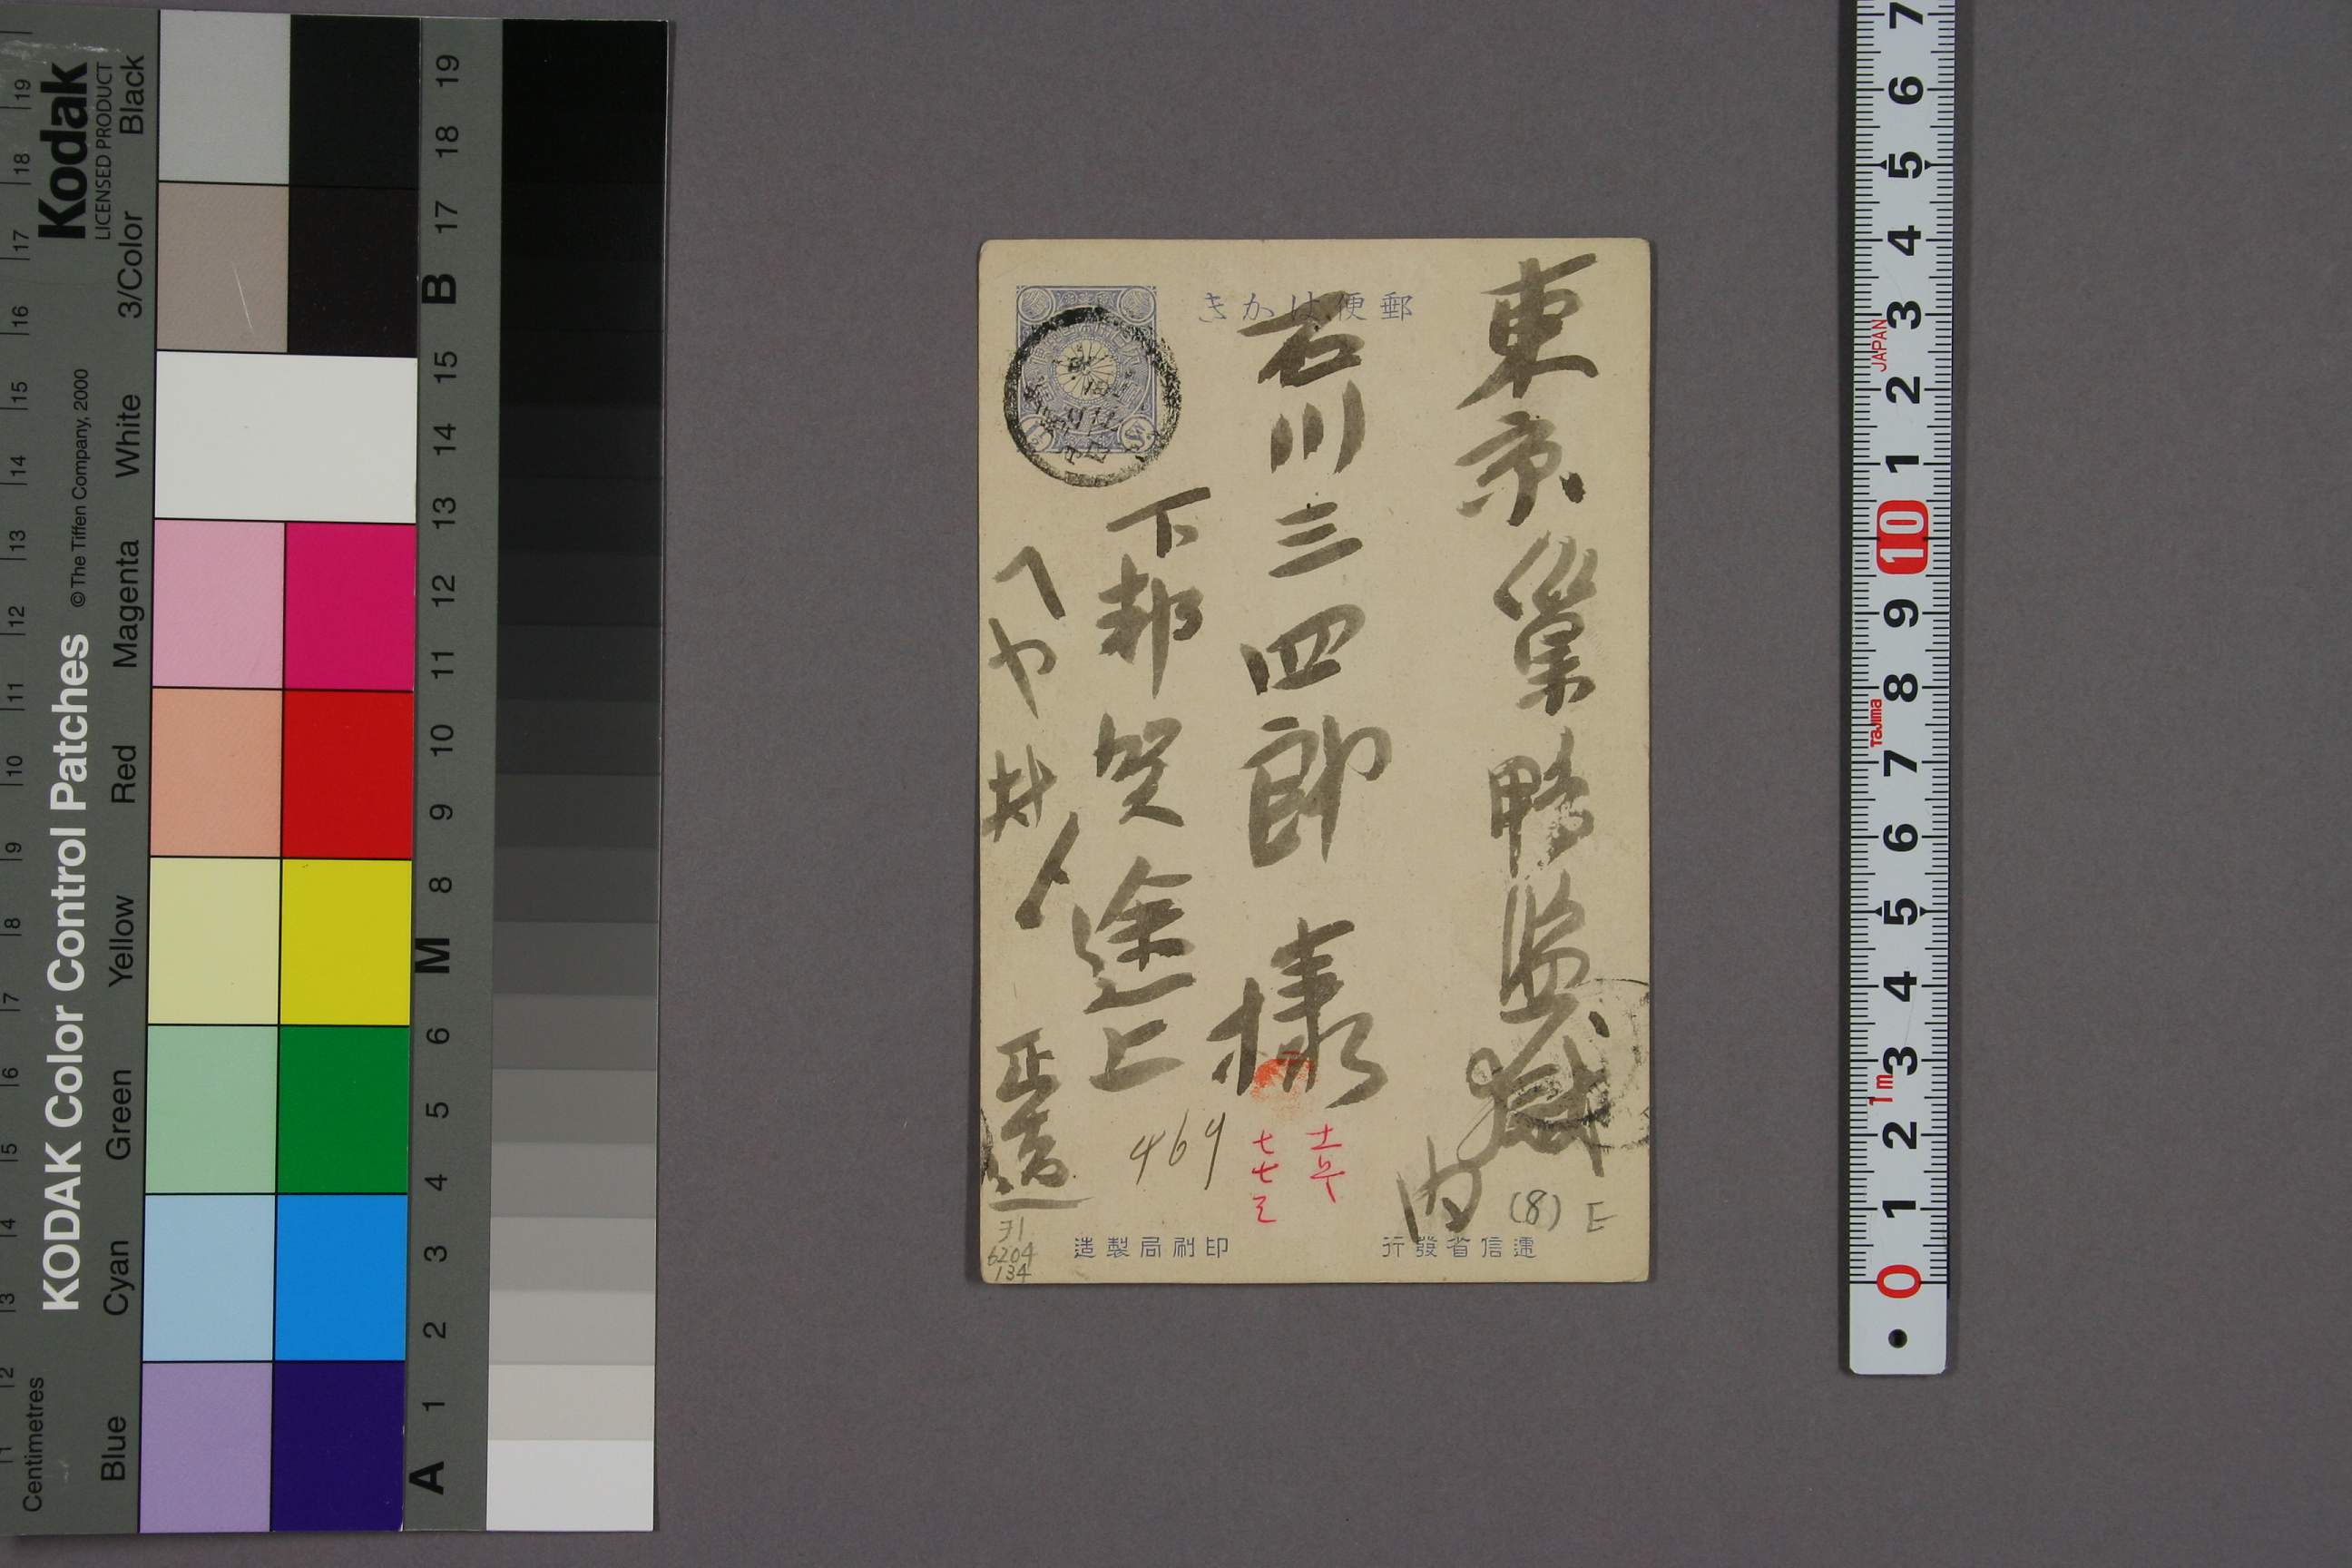 郵便はかき
東京巣鴨監獄
内
石川三四郎 様
下都賀途上
正造
469
七七三
(8) E
ヲ1
6204
134
逓信省發行
印刷局製造
Kodak
LICENSED PRODUCT
KODAK Color Control Patches
© The Tiffen Company, 2000
Centimetres
Blue
Cyan
Green
Yellow
Red
Magenta
White
3/Color
Black
1 2 3 4 5 6 7 8 9 10 11 12 13 14 15 16 17 18 19
A 1 2 3 4 5 6 M 8 9 10 11 12 13 14 15 B 17 18 19
7 6 5 4 3 2 1 10 9 8 7 6 5 4 3 2 1 0
JAPAN
Tajima
1m